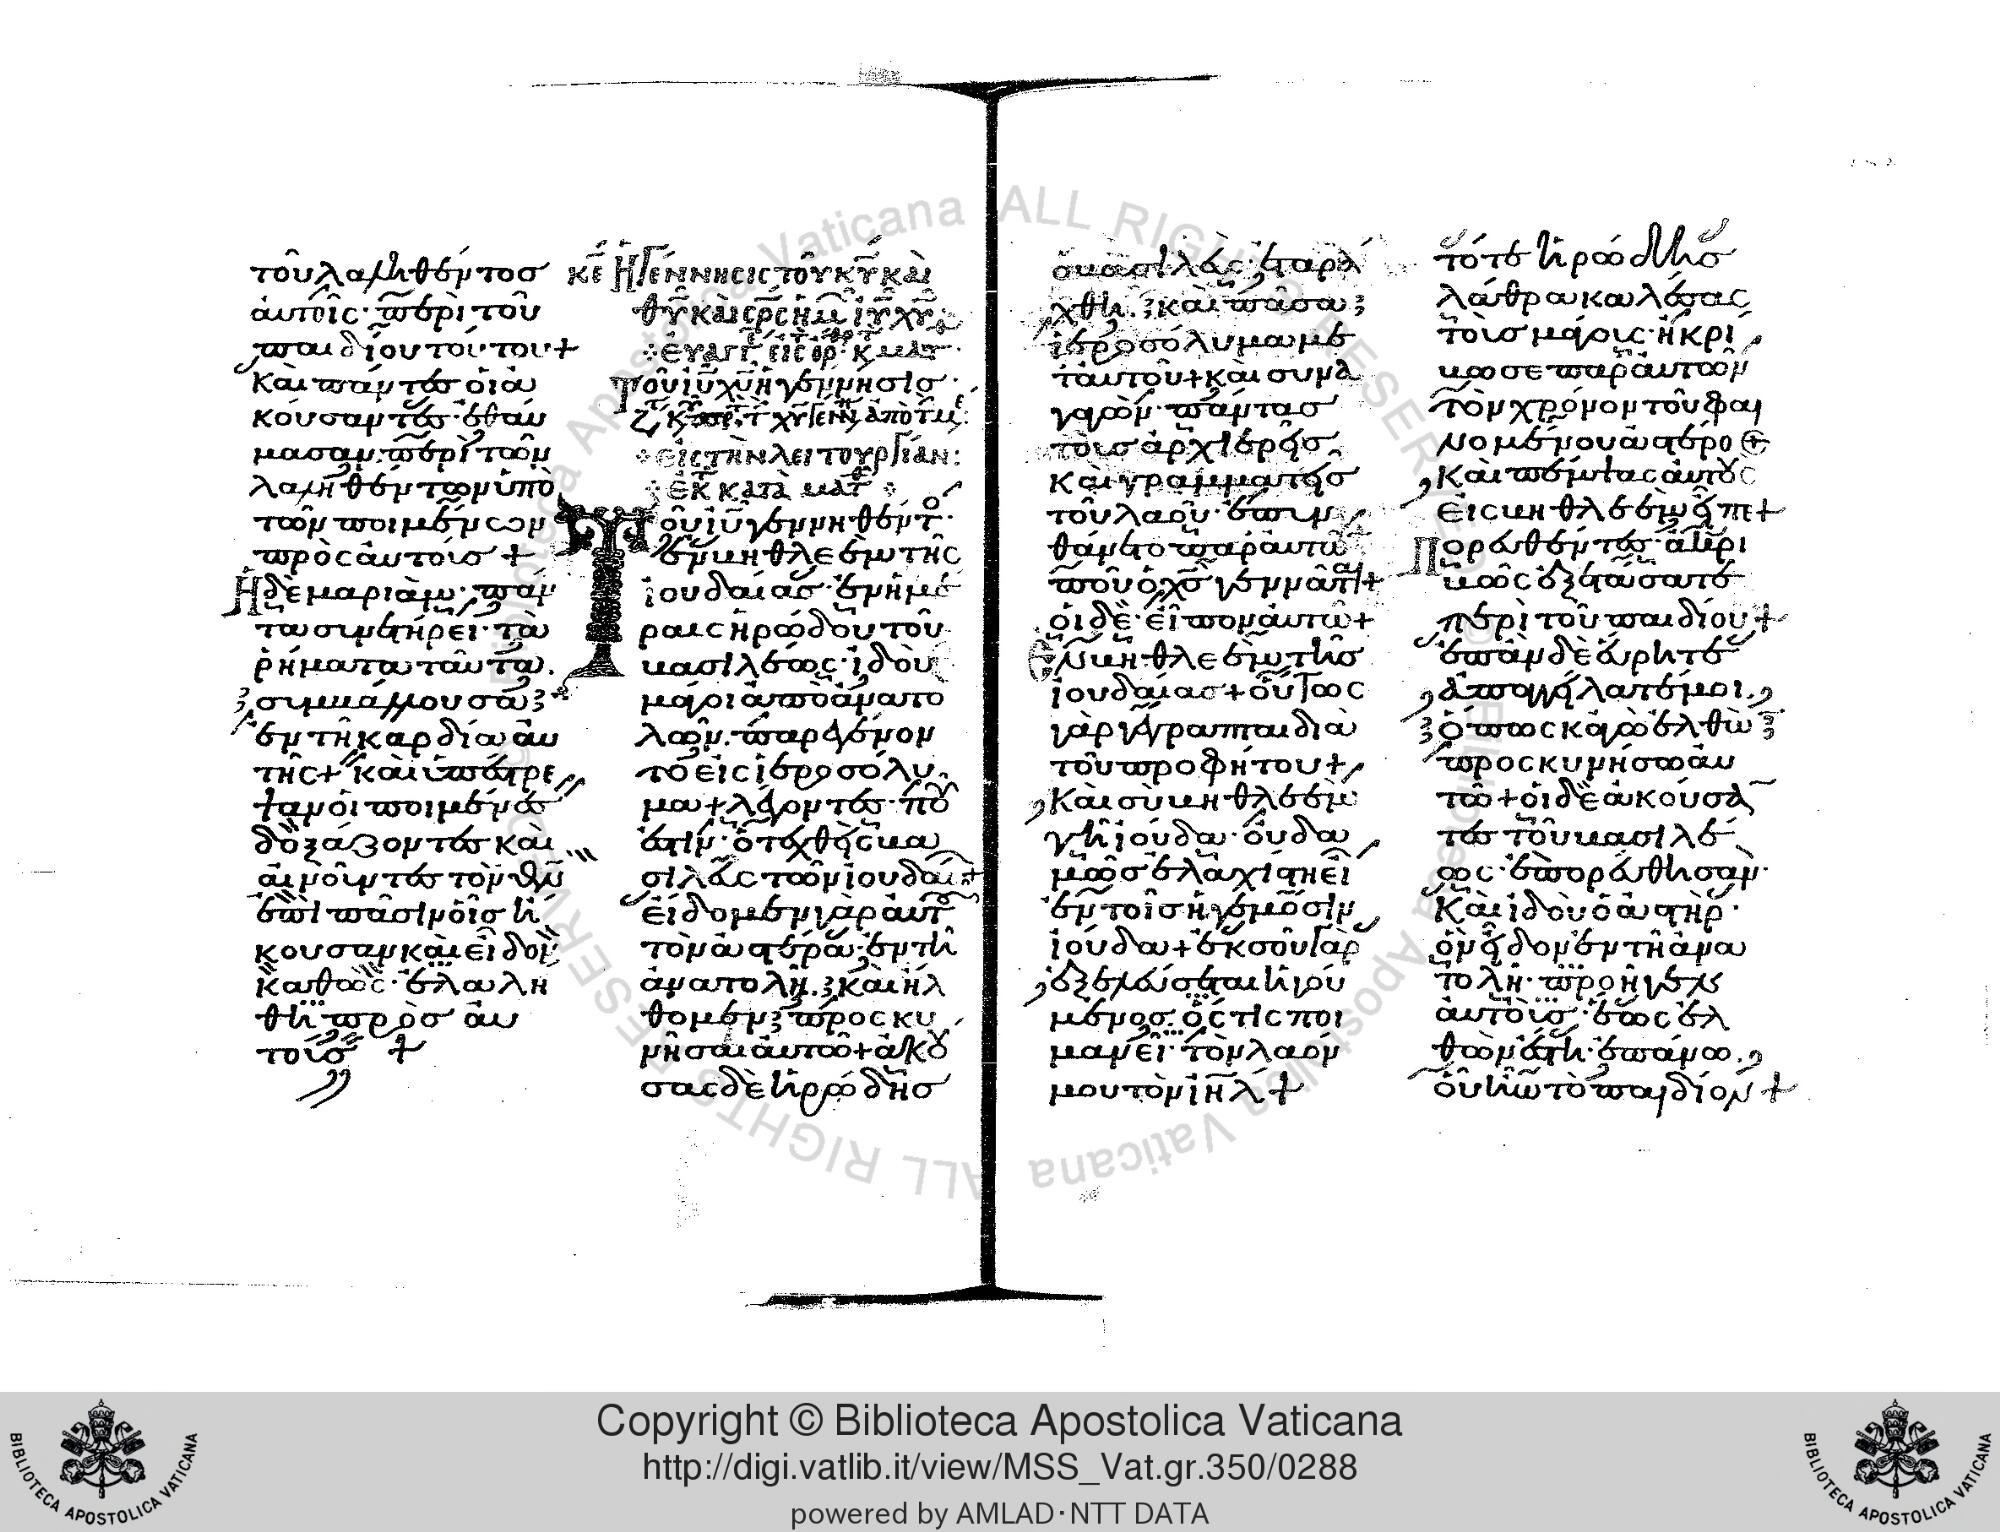 τοῦ λαληθέντος
αὐτοῖς· περὶ τοῦ
παιδίου τούτου+
Καὶ πάντες οἱ ἀ
κούσαντες· ἐθαύ
μασαν· περὶ τῶν
λαληθέντων ὑπὸ
τῶν ποιμένων
πρὸς αὐτούς +
Ἡ δὲ μαριὰμ· πάν
τα συνετήρει· τὰ
ῥήματα ταῦτα.
συμβάλλουσα
ἐν τῇ καρδία αὐ
τῆς+ καὶ ὑπέστρε
ψαν οἱ ποιμένες
δοξάζοντες καὶ
αἰνοῦντες τὸν θν
ἐπὶ πᾶσιν οἷς ἤ
κουσαν καὶ εἶδον
καθὼς· ἐλαλή
θη πρὸς αὐ
τούς +
κε Ἡ Γέννησις τοῦ κυ καὶ
θυ καὶ σρς ἡμ ιυ χυ
Τοῦ ιυ χυ ἡ γέννησις·
εἰς τὴν λειτουργίαν:
ἐκ κατὰ ματ
Τοῦ ιυ γεννηθέντ·
ἐν βηθλεὲμ τῆς
ἰουδαίας· ἐν ἡμέ
ραις ἡρώδου τοῦ
βασιλέως· ἰδοὺ
μάγοι ἀπὸ ἀνατο
λῶν· παρεγένον
το εἰς ἱεροσόλυ
μα+ λέγοντες· ποῦ
ἐστιν· ὁ τεχθεὶς βα
σιλεὺς τῶν ἰουδαί+
εἴδομεν γὰρ αὐτ
τὸν ἀστέρα· ἐν τῇ
ἀνατολῇ· καὶ ἤλ
θομεν προσκυ
νῆσαι αὐτῶ+ ἀκού
σας δὲ ἡρώδης
ὁ βασιλεὺς· ἐταρά
χθη· καὶ πᾶσα
ἱεροσόλυμα με
τ' αὐτοῦ+ καὶ συνα
γαγὼν· πάντας
τοὺς ἀρχιερεῖς
καὶ γραμματεῖς
τοῦ λαοῦ· ἐπυν
θάνετο παρ' αὐτῶ
ποῦ ὁ χς γεννᾶται+
οἱ δὲ· εἶπον αὐτῶ+
Ἐν βηθλεὲμ τῆς
ἰουδαίας+ οὕτως
γὰρ γέγραπται διὰ
τοῦ προφήτου+
Καὶ σὺ βηθλεὲμ
γῆ ἰούδα· οὐδα
μῶς ἐλαχίστη εἶ
ἐν τοῖς ἡγεμόσιν
ἰούδα+ ἐκ σοῦ γὰρ
ἐξελεύσεται ἡγού
μενος· ὅστις ποι
μανεῖ· τὸν λαόν
μου τὸν ιηλ+
τότε ἡρώδης
λάθρα καλέσας
τοὺς μάγους· ἠκρί
βωσε παρ' αὐτῶν
τὸν χρόνον τοῦ φαι
νομένου ἀστέρο
Καὶ πέμψας αὐτοὺς
εἰς βηθλεὲμ εἶπε+
Πορευθέντες· ἀκρι
βῶς ἐξετάσατε
περὶ τοῦ παιδίου+
ἐπὰν δὲ εὕρητε
ἀπαγγείλατέ μοι·
ὅπως κἀγὼ ἐλθὼ
προσκυνήσω αὐ
τῶ+ οἱ δὲ ἀκούσα
τες τοῦ βασιλέ
ως· ἐπορεύθησαν·
Καὶ ἰδοὺ ὁ ἀστὴρ·
ὃν εἶδον ἐν τῇ ἀνα
τολῇ· προῆγεν
αὐτοὺς· ἕως ἐλ
θὼν ἔστη· ἐπάνω·
οὗ ἦν τὸ παιδίον+
ALL RIGHTS RESERVED
© Biblioteca Apostolica Vaticana
Copyright © Biblioteca Apostolica Vaticana
http://digi.vatlib.it/view/MSS_Vat.gr.350/0288
powered by AMLAD·NTT DATA
BIBLIOTECA APOSTOLICA VATICANA
BIBLIOTECA APOSTOLICA VATICANA